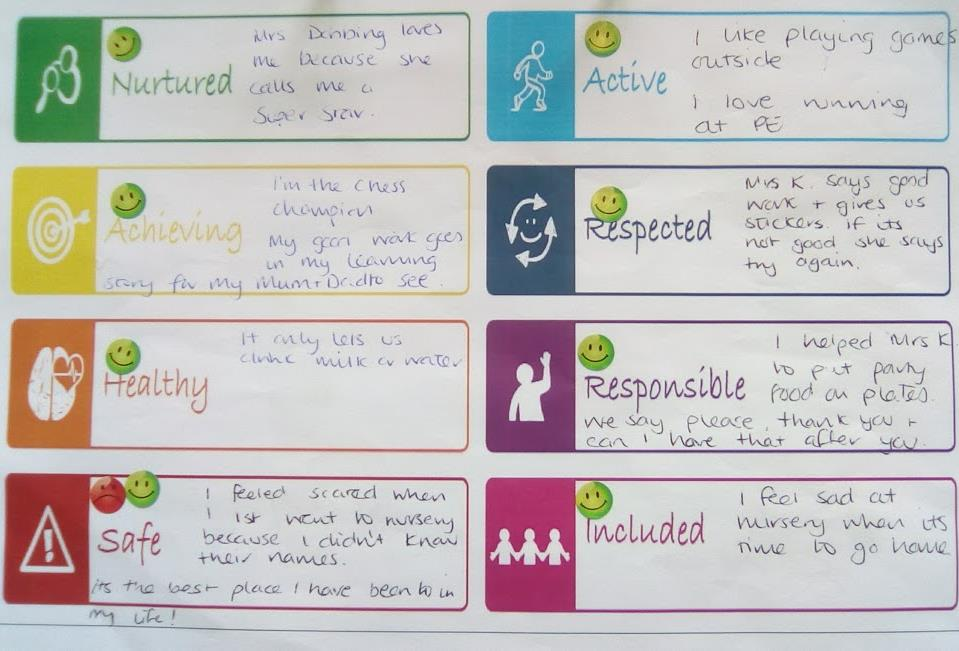 Nurtured
Mrs Dobbing loves
me because she
calls me a
Super Star.
Active
I like playing games
outside
I love running
at PE
Achieving
I'm the chess
champion
My good work goes
in my learning
story for my Mum + Dad to see.
Respected
Mrs K. says good
work + gives us
stickers. if its
not good she says
try again.
Healthy
It only lets us
drink milk or water
Responsible
I helped Mrs K
to put party
food on plates.
we say please, thank you +
can I have that after you.
Safe
I feeled scared when
I 1st went to nursery
because I didn't know
their names.
its the best place I have been to in
my life!
Included
I feel sad at
nursery when its
time to go home